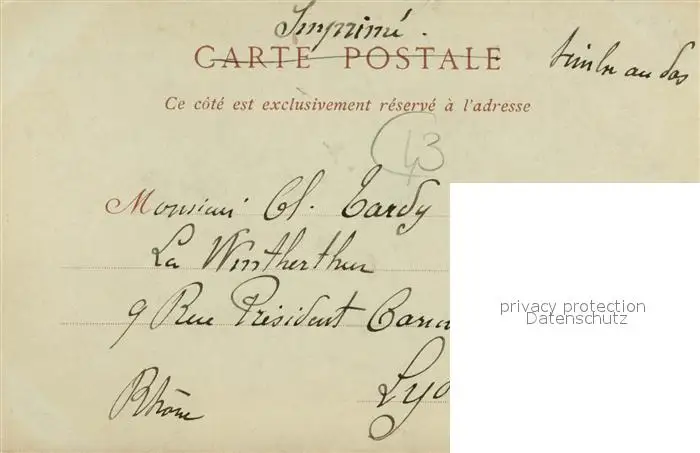 Imprimé.
CARTE POSTALE
timbre au dos
Ce côté est exclusivement réservé à l'adresse
43
Monsieur Cl. Tardy
La Wintherthur
9 Rue Président Carn
Rhône
Lyo
privacy protection
Datenschutz